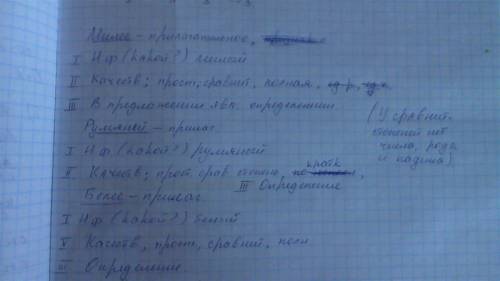 Милее – прилагательное,
I Н.ф (какой?) милый
II Качеств; прост, сравнит, полная, ед.р,
III В предложении явл. определением
Румяней – прилаг.
I Н.ф (какой?) румяный
II Качеств; прост. срав степень, кратк
III Определение
Белее – прилаг
I Н.ф (какой?) белый
II Качеств, прост, сравнит, полн
III Определение.
(У сравнит.
степеней нет
числа, рода
и падежа)